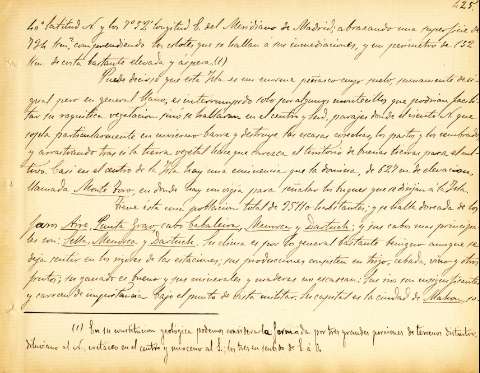 425.
40° latitud N. y los 7° 32' longitud E. del Meridiano de Madrid; abrazando una superficie de
734 Km.² comprendiendo los islotes que se hallan a sus inmediaciones, y un perímetro de 152
Km. de costa bastante elevada y áspera. (1)
Puede decirse que esta Isla es un enorme peñasco cuyo suelo, sumamente desi-
gual pero en general llano, es interrumpido solo por algunos montecillos que podrían facili-
tar su raquítica vegetación sino se hallaran en el centro y sud, parajes donde el viento N. que
sopla particularmente en invierno barre y destruye las escasas cosechas, los pastos y los sembrados
y arrastrando tras sí la tierra vegetal hace que carezca el territorio de buenas tierras para el cul-
tivo. Casi en el centro de la Isla hay una eminencia que la domina, de 527 m. de elevación,
llamada Monte Toro, en donde hay un vigía para señalar los buques que se dirijan a la Isla.
Tiene ésta una población total de habitantes; y se halla rodeada de los
faros Aire, Punta Grao, cabo Caballería, Menorca y Dartuch; y sus cabos mas principa-
les son: Menorca y Dartuch. Su clima es por lo general bastante benigno aunque se
deja sentir en los rigores de las estaciones; sus producciones consisten en trigo, cebada, vino y otros
frutos; su ganado es bueno y sus minerales y maderas no escasean: Sus rios son insignificantes
y carecen de importancia bajo el punto de vista militar. Su capital es la ciudad de Mahon, su
(1) En su constitucion geológica podemos considerarla formada por tres grandes porciones de terrenos distintos;
diluviano al N., cretáceo en el centro y mioceno al S.; los tres en sentido de E. a O.